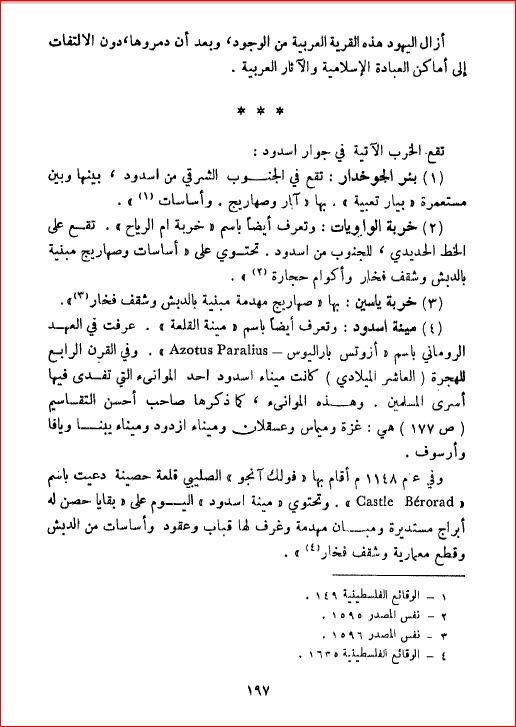 أزال اليهود هذه القرية العربية من الوجود، وبعد أن دمروها، دون الالتفات
إلى أماكن العبادة الإسلامية والآثار العربية .
* * *
تقع الخرب الآتية في جوار اسدود :
(١) بئر الجوخدار : تقع في الجنوب الشرقي من اسدود ، بينها وبين
مستعمرة « بيار تعبية » . بها « آبار وصهاريج . وأساسات (١) » .
(٢) خربة الوابويات : وتعرف أيضاً باسم « خربة ام الرياح » . تقع على
الخط الحديدي ، للجنوب من اسدود . تحتوي على « أساسات وصهاريج مبنية
بالدبش وشقف فخار وأكوام حجارة (٢) » .
(٣) خربة ياسين : بها « صهاريج مهدمة مبنية بالدبش وشقف فخار(٣)» .
(٤) مينة اسدود : وتعرف أيضاً باسم « مينة القلعة » . عرفت في العهد
الروماني باسم « أزوتس باراليوس – Azotus Paralius » . وفي القرن الرابع
للهجرة ( العاشر الميلادي ) كانت ميناء اسدود احد الموانىء التي تفدى فيها
أسرى المسلمين . وهذه الموانىء ، كما ذكرها صاحب أحسن التقاسيم
( ص ١٧٧ ) هي : غزة وميماس وعسقلان وميناء ازدود وميناء يبنا ويافا
وأرسوف .
وفي عام ١١٤٨ م أقام بها « فولك آنجو » الصليبي قلعة حصينة دعيت باسم
« Castle Bérorad » . وتحتوي « مينة اسدود » اليوم على « بقايا حصن له
أبراج مستديرة ومبان مهدمة وغرف لها قباب وعقود وأساسات من الدبش
وقطع معمارية وشقف فخار(٤) » .
١ – الوقائع الفلسطينية ١٤٩ .
٢ – نفس المصدر ١٥٩٥ .
٣ – نفس المصدر ١٥٩٦ .
٤ – الوقائع الفلسطينية ١٦٣٥ .
١٩٧